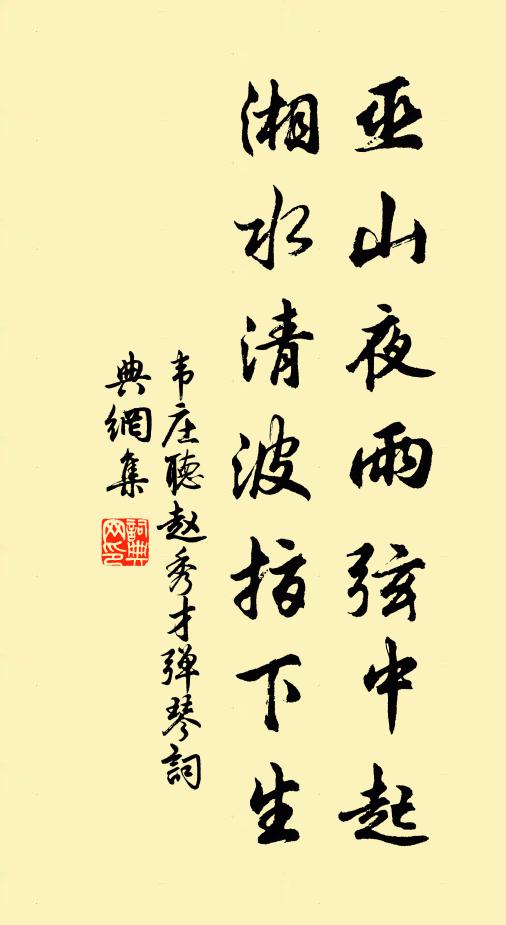 巫山夜雨弦中起
湘水清波指下生
韦庄聽赵秀才弹琴詞
典網集
詞典
网印